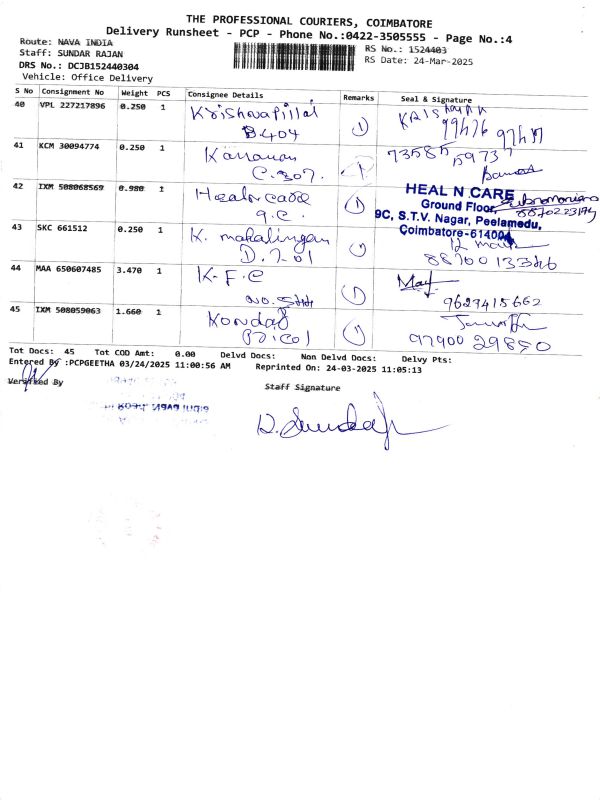 THE PROFESSIONAL COURIERS, COIMBATORE
Delivery Runsheet - PCP - Phone No.:0422-3505555 - Page No.:4
Route: NAVA INDIA
RS No.: 1524403
Staff: SUNDAR RAJAN
RS Date: 24-Mar-2025
DRS No.: DCJB152440304
Vehicle: Office Delivery
S No Consignment No Weight PCS Consignee Details Remarks Seal & Signature
40 VPL 227217896 0.250 1 Krishnapillai 1
B 404
41 KCM 30094774 0.250 1 Kannan 1
C. 307.
42 IXM 508068569 0.980 1 Healncare 1
9.C.
HEAL N CARE
Ground Floor,
9C, S.T.V. Nagar, Peelamedu,
Coimbatore-614004
43 SKC 661512 0.250 1 K. mahalingam 1
D. 701
44 MAA 650607485 3.470 1 K-F.C 1
9629415662
45 IXM 508059063 1.660 1 1
97900 29850
Tot Docs: 45 Tot COD Amt: 0.00 Delvd Docs: Non Delvd Docs: Delvy Pts:
Entered By :PCPGEETHA 03/24/2025 11:00:56 AM Reprinted On: 24-03-2025 11:05:13
Verified By
Staff Signature